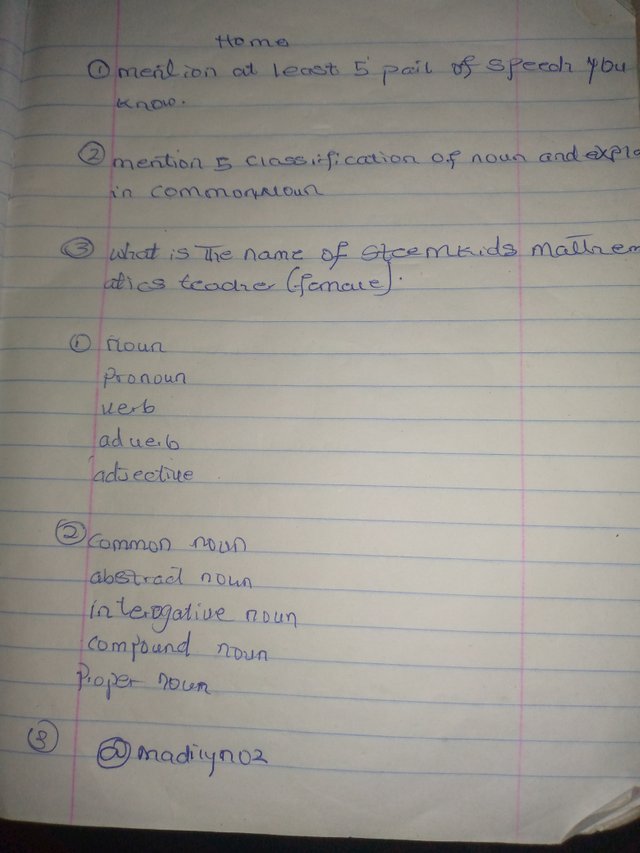 Home
① mention at least 5 pait of speech you
know.
② mention 5 classification of noun and expla
in common Noun
③ what is The name of steemkids mathem
atics teacher (female).
① noun
pronoun
verb
adverb
adjective
② common noun
abstract noun
interogative noun
compound noun
Proper noun
③ @madilyn02